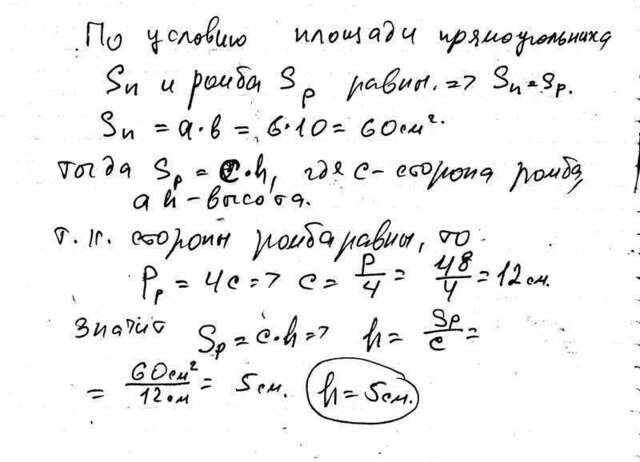 По условию площади прямоугольника
Sп и ромба Sр равны. => Sп = Sр.
Sп = a·b = 6·10 = 60 см².
тогда Sр = c·h, где c - сторона ромба,
а h - высота.
т.к. стороны ромба равны, то
Pр = 4c => c = P/4 = 48/4 = 12 см.
значит Sр = c·h => h = Sр/c =
= 60 см²/12 см = 5 см. h = 5 см.